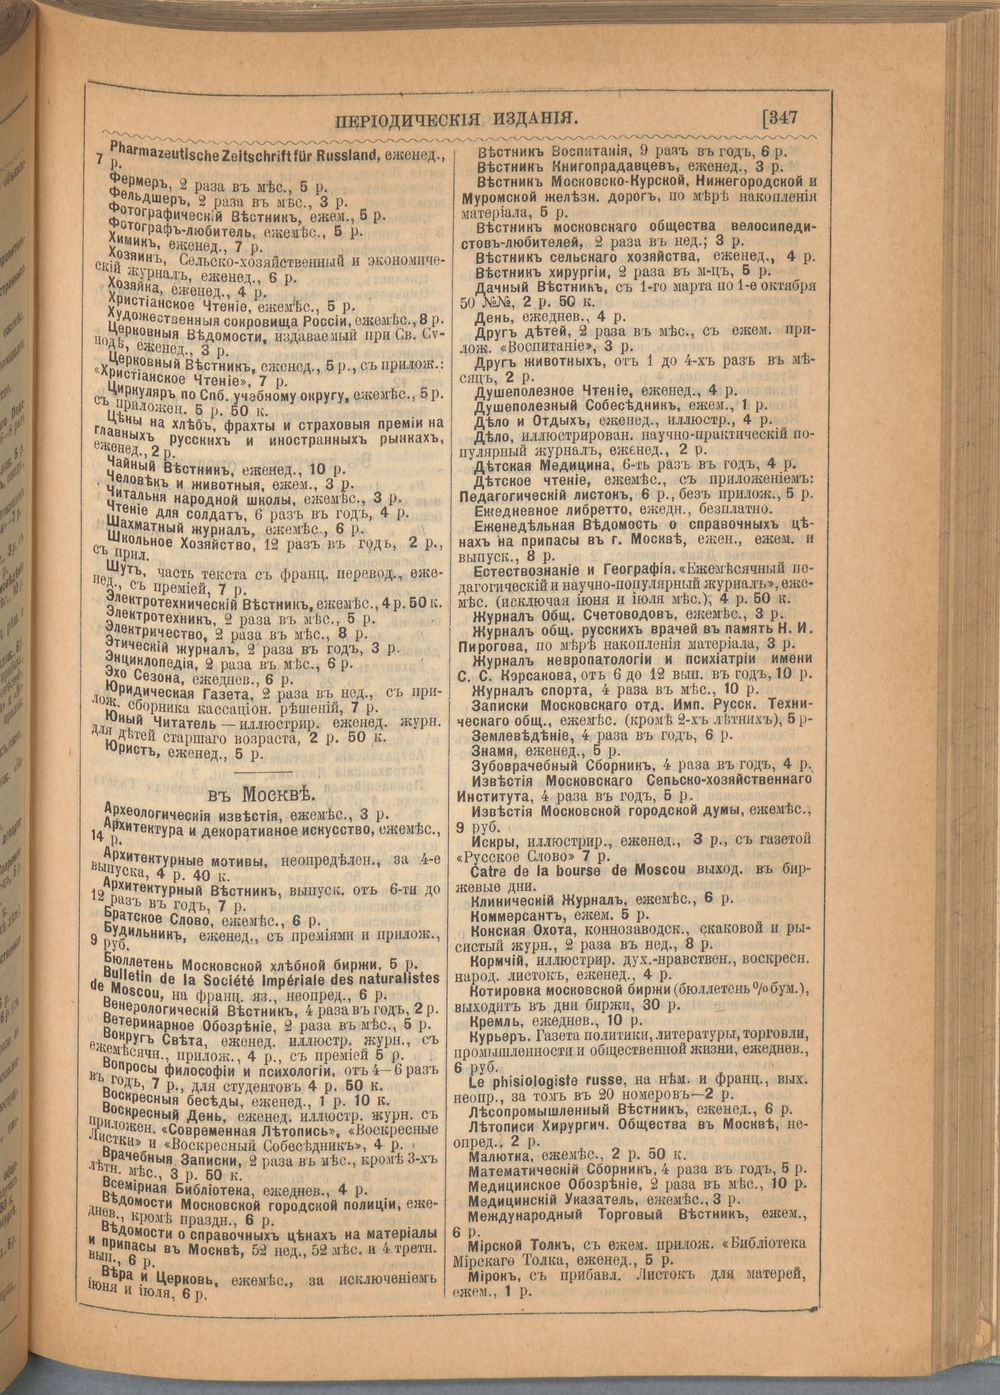 ПЕРІОДИЧЕСКІЯ ИЗДАНІЯ.
[347
Pharmazeutische Zeitschrift für Russland, еженед.,
7 р.
Фермеръ, 2 раза въ мѣс., 5 р.
Фельдшеръ, 2 раза въ мѣс., 3 р.
Фотографическій Вѣстникъ, ежем., 5 р.
Фотографъ-любитель, ежемѣс., 5 р.
Химикъ, еженед., 7 р.
Хозяинъ, Сельско-хозяйственный и экономиче-
скій журналъ, еженед., 6 р.
Хозяйка, еженед., 4 р.
Христіанское Чтеніе, ежемѣс., 5 р.
Художественныя сокровища Россіи, ежемѣс., 8 р.
Церковныя Вѣдомости, издаваемый при Св. Сѵ-
нодѣ, еженед., 3 р.
Церковный Вѣстникъ, еженед., 5 р., съ прилож.:
«Христіанское Чтеніе», 7 р.
Циркуляръ по Спб. учебному округу, ежемѣс., 5 р.
съ приложен. 5 р. 50 к.
Цѣны на хлѣбъ, фрахты и страховыя преміи на
главныхъ русскихъ и иностранныхъ рынкахъ,
еженед., 2 р.
Чайный Вѣстникъ, еженед., 10 р.
Человѣкъ и животныя, ежем., 3 р.
Читальня народной школы, ежемѣс., 3 р.
Чтеніе для солдатъ, 6 разъ въ годъ, 4 р.
Шахматный журналъ, ежемѣс., 6 р.
Школьное Хозяйство, 12 разъ въ годъ, 2 р.,
съ прил.
Шутъ, часть текста съ франц. перевод., еже-
нед., съ преміей, 7 р.
Электротехническій Вѣстникъ, ежемѣс., 4 р. 50 к.
Электротехникъ, 2 раза въ мѣс., 5 р.
Электричество, 2 раза въ мѣс., 8 р.
Этическій журналъ, 2 раза въ годъ, 3 р.
Энциклопедія, 2 раза въ мѣс., 6 р.
Эхо Сезона, ежеднев., 6 р.
Юридическая Газета, 2 раза въ нед., съ при-
лож. сборника кассаціон. рѣшеній, 7 р.
Юный Читатель — иллюстрир. еженед. журн.
для дѣтей старшаго возраста, 2 р. 50 к.
Юристъ, еженед., 5 р.
въ Москвѣ.
Археологическія извѣстія, ежемѣс., 3 р.
Архитектура и декоративное искусство, ежемѣс.,
14 р.
Архитектурные мотивы, неопредѣлен., за 4-е
выпуска, 4 р. 40 к.
Архитектурный Вѣстникъ, выпуск. отъ 6-ти до
12 разъ въ годъ, 7 р.
Братское Слово, ежемѣс., 6 р.
Будильникъ, еженед., съ преміями и прилож.,
9 руб.
Бюллетень Московской хлѣбной биржи, 5 р.
Bulletin de la Société Impériale des naturalistes
de Moscou, на франц. яз., неопред., 6 р.
Венерологическій Вѣстникъ, 4 раза въ годъ, 2 р.
Ветеринарное Обозрѣніе, 2 раза въ мѣс., 5 р.
Вокругъ Свѣта, еженед. иллюстр. журн., съ
ежемѣсячн., прилож., 4 р., съ преміей 5 р.
Вопросы философіи и психологіи, отъ 4—6 разъ
въ годъ, 7 р., для студентовъ 4 р. 50 к.
Воскресныя бесѣды, еженед., 1 р. 10 к.
Воскресный День, еженед. иллюстр. журн. съ
приложен. «Современная Лѣтопись», «Воскресные
Листки» и «Воскресный Собесѣдникъ», 4 р.
Врачебныя Записки, 2 раза въ мѣс., кромѣ 3-хъ
лѣтн. мѣс., 3 р. 50 к.
Всемірная Библіотека, ежеднев., 4 р.
Вѣдомости Московской городской полиціи, еже-
днев., кромѣ праздн., 6 р.
Вѣдомости о справочныхъ цѣнахъ на матеріалы
и припасы въ Москвѣ, 52 нед., 52 мѣс. и 4 третн.
вып., 6 р.
Вѣра и Церковь, ежемѣс., за исключеніемъ
іюня и іюля, 6 р.
Вѣстникъ Воспитанія, 9 разъ въ годъ, 6 р.
Вѣстникъ Книгопрадавцевъ, еженед., 3 р.
Вѣстникъ Московско-Курской, Нижегородской и
Муромской желѣзн. дорогъ, по мѣрѣ накопленія
матеріала, 5 р.
Вѣстникъ московскаго общества велосипеди-
стовъ-любителей, 2 раза въ нед.; 3 р.
Вѣстникъ сельскаго хозяйства, еженед., 4 р.
Вѣстникъ хирургіи, 2 раза въ м-цъ, 5 р.
Дачный Вѣстникъ, съ 1-го марта по 1-е октября
50 №№, 2 р. 50 к.
День, ежеднев., 4 р.
Другъ дѣтей, 2 раза въ мѣс., съ ежем. при-
лож. «Воспитаніе», 3 р.
Другъ животныхъ, отъ 1 до 4-хъ разъ въ мѣ-
сяцъ, 2 р.
Душеполезное Чтеніе, еженед., 4 р.
Душеполезный Собесѣдникъ, ежем., 1 р.
Дѣло и Отдыхъ, еженед., иллюстр., 4 р.
Дѣло, иллюстрирован. научно-практическій по-
пулярный журналъ, еженед., 2 р.
Дѣтская Медицина, 6-ть разъ въ годъ, 4 р.
Дѣтское чтеніе, ежемѣс., съ приложеніемъ:
Педагогическій листокъ, 6 р., безъ прилож., 5 р.
Ежедневное либретто, ежедн., безплатно.
Еженедѣльная Вѣдомость о справочныхъ цѣ-
нахъ на припасы въ г. Москвѣ, ежен., ежем. и
выпуск., 8 р.
Естествознаніе и Географія. «Ежемѣсячный пе-
дагогическій и научно-популярный журналъ», еже-
мѣс. (исключая іюня и іюля мѣс.); 4 р. 50 к.
Журналъ Общ. Счетоводовъ, ежемѣс., 3 р.
Журналъ общ. русскихъ врачей въ память Н. И.
Пирогова, по мѣрѣ накопленія матеріала, 3 р.
Журналъ невропатологіи и психіатріи имени
С. С. Корсакова, отъ 6 до 12 вып. въ годъ, 10 р.
Журналъ спорта, 4 раза въ мѣс., 10 р.
Записки Московскаго отд. Имп. Русск. Техни-
ческаго общ., ежемѣс. (кромѣ 2-хъ лѣтнихъ), 5 р-
Землевѣдѣніе, 4 раза въ годъ, 6 р.
Знамя, еженед., 5 р.
Зубоврачебный Сборникъ, 4 раза въ годъ, 4 р.
Извѣстія Московскаго Сельско-хозяйственнаго
Института, 4 раза въ годъ, 5 р.
Извѣстія Московской городской думы, ежемѣс.,
9 руб.
Искры, иллюстрир., еженед., 3 р., съ газетой
«Русское Слово» 7 р.
Catre de la bourse de Moscou выход. въ бир-
жевые дни.
Клиническій Журналъ, ежемѣс., 6 р.
Коммерсантъ, ежем. 5 р.
Конская Охота, коннозаводск., скаковой и ры-
систый журн., 2 раза въ нед., 8 р.
Кормчій, иллюстрир. дух.-нравствен., воскресн.
народ. листокъ, еженед., 4 р.
Котировка московской биржи (бюллетень % бум.),
выходитъ въ дни биржи, 30 р.
Кремль, ежеднев., 10 р.
Курьеръ. Газета политики, литературы, торговли,
промышленности и общественной жизни, ежеднев.,
6 руб.
Le phisiologiste russe, на нѣм. и франц., вых.
неопр., за томъ въ 20 номеровъ—2 р.
Лѣсопромышленный Вѣстникъ, еженед., 6 р.
Лѣтописи Хирургич. Общества въ Москвѣ, не-
опред., 2 р.
Малютка, ежемѣс., 2 р. 50 к.
Математическій Сборникъ, 4 раза въ годъ, 5 р.
Медицинское Обозрѣніе, 2 раза въ мѣс., 10 р.
Медицинскій Указатель, ежемѣс., 3 р.
Международный Торговый Вѣстникъ, ежем.,
6 р.
Мірской Толкъ, съ ежем. прилож. «Библіотека
Мірскаго Толка, еженед., 5 р.
Мірокъ, съ прибавл. Листокъ для матерей,
ежем., 1 р.